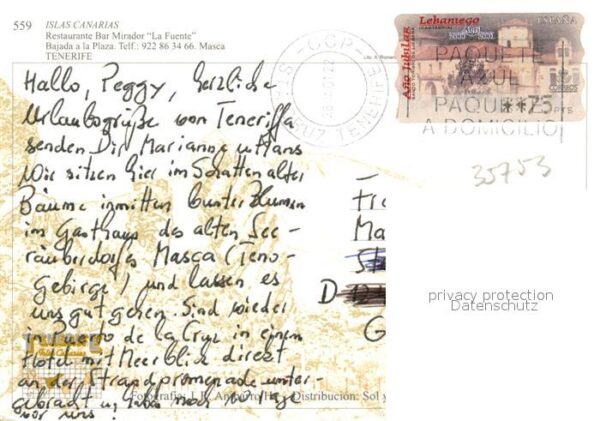 559 ISLAS CANARIAS
Restaurante Bar Mirador "La Fuente"
Bajada a la Plaza. Telf.: 922 86 34 66. Masca
TENERIFE
Lebaniego
ESPAÑA
Año Jubilar
CORREOS
CCP
TENERIFE
PAQUETE
AZUL
PAQUE
**75 PTS
A DOMICILIO
35753
Hallo, Peggy, herzliche
Urlaubsgrüße von Teneriffa
senden Dir Marianne u. Hans
Wir sitzen hier im Schatten alter
Bäume inmitten bunter Blumen
im Gasthaus des alten See-
räuberdorfes Masca (Teno-
Gebirge), und lassen es
uns gut gehen. Sind wieder
in Puerto de la Cruz in einem
Hotel mit Meerblick direkt
an der Strandpromenade unter-
gebracht u. haben noch Tage
vor uns!
Fr
Ma
St
D-
G
privacy protection
Datenschutz
Fotografía: Distribución: Sol y